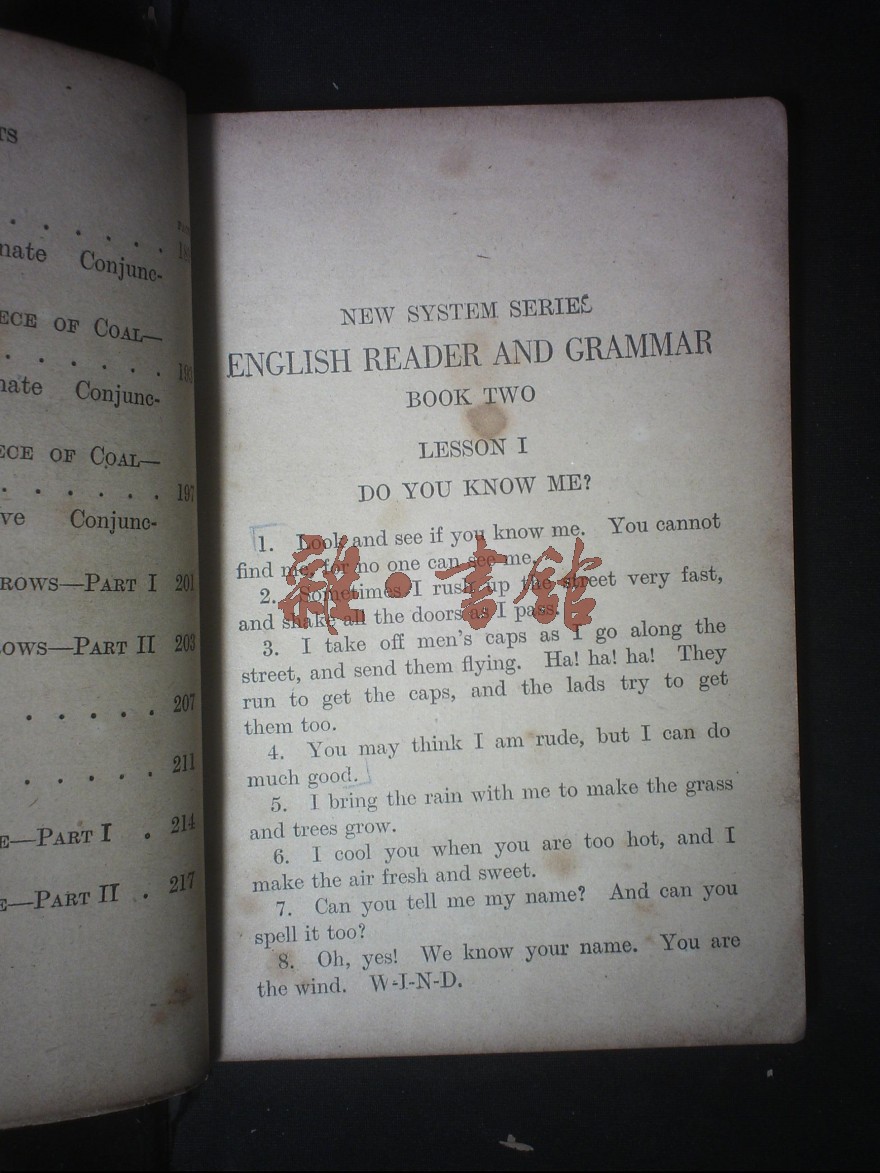 TS
nate Conjunc-
ECE OF COAL—
193
nate Conjunc-
ECE OF COAL—
197
ve Conjunc-
ROWS—PART I 201
OWS—PART II 203
207
211
E—PART I . 214
E—PART II . 217
NEW SYSTEM SERIES
ENGLISH READER AND GRAMMAR
BOOK TWO
LESSON I
DO YOU KNOW ME?
1. Look and see if you know me. You cannot
find me, for no one can see me.
2. Sometimes I rush up the street very fast,
and shake all the doors as I pass.
3. I take off men's caps as I go along the
street, and send them flying. Ha! ha! ha! They
run to get the caps, and the lads try to get
them too.
4. You may think I am rude, but I can do
much good.
5. I bring the rain with me to make the grass
and trees grow.
6. I cool you when you are too hot, and I
make the air fresh and sweet.
7. Can you tell me my name? And can you
spell it too?
8. Oh, yes! We know your name. You are
the wind. W-I-N-D.
雜·書館